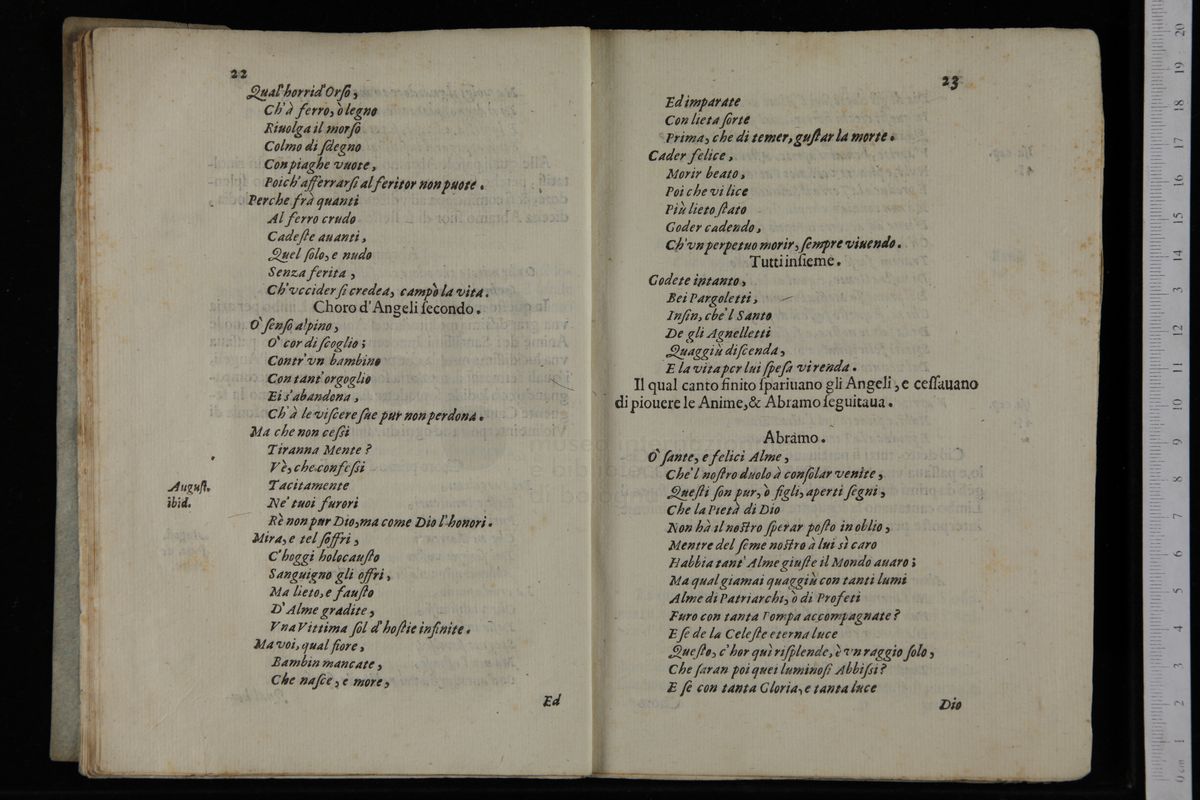 22
Qual' horrid' Orſo,
Ch' à ferro, ò legno
Riuolga il morſo
Colmo di ſdegno
Con piaghe vuote,
Poich' afferrarſi al feritor non puote.
Perche frà quanti
Al ferro crudo
Cadeſte auanti,
Quel ſolo, e nudo
Senza ferita,
Ch' vccider ſi credea, campò la vita.
Choro d'Angeli ſecondo.
O' ſenſo alpino,
O' cor di ſcoglio;
Contr' vn bambino
Con tant' orgoglio
Ei s' abandona,
Ch' à le viſcere ſue pur non perdona.
Ma che non ceſsi
Tiranna Mente?
Vè, che confeſsi
Tacitamente
Auguſt.
ibid.
Ne' tuoi furori
Rè non pur Dio, ma come Dio l' honori.
Mira, e tel ſoffri,
C' hoggi holocauſto
Sanguigno gli offri,
Ma lieto, e fauſto
D' Alme gradite,
Vna Vittima ſol d' hoſtie infinite.
Ma voi, qual fiore,
Bambin mancate,
Che naſce, e more,
Ed
23
Ed imparate
Con lieta ſorte
Prima, che di temer, guſtar la morte.
Cader felice,
Morir beato,
Poi che vi lice
Più lieto ſtato
Goder cadendo,
Ch' vn perpetuo morir, ſempre viuendo.
Tutti inſieme.
Godete intanto,
Bei Pargoletti,
Inſin, che 'l Santo
De gli Agnelletti
Quaggiù diſcenda,
E la vita per lui ſpeſa vi renda.
Il qual canto finito ſpariuano gli Angeli, e ceſſauano
di piouere le Anime, & Abramo ſeguitaua.
Abramo.
O' ſante, e felici Alme,
Che 'l noſtro duolo à conſolar venite,
Queſti ſon pur, ò figli, aperti ſegni,
Che la Pietà di Dio
Non hà il noſtro ſperar poſto in oblio,
Mentre del ſeme noſtro à lui sì caro
Habbia tant' Alme giuſte il Mondo auaro;
Ma qual giamai quaggiù con tanti lumi
Alme di Patriarchi, ò di Profeti
Furo con tanta Pompa accompagnate?
E ſe de la Celeſte eterna luce
Queſto, c' hor quì riſplende, è vn raggio ſolo,
Che ſaran poi quei luminoſi Abbiſsi?
E ſe con tanta Gloria, e tanta luce
Dio